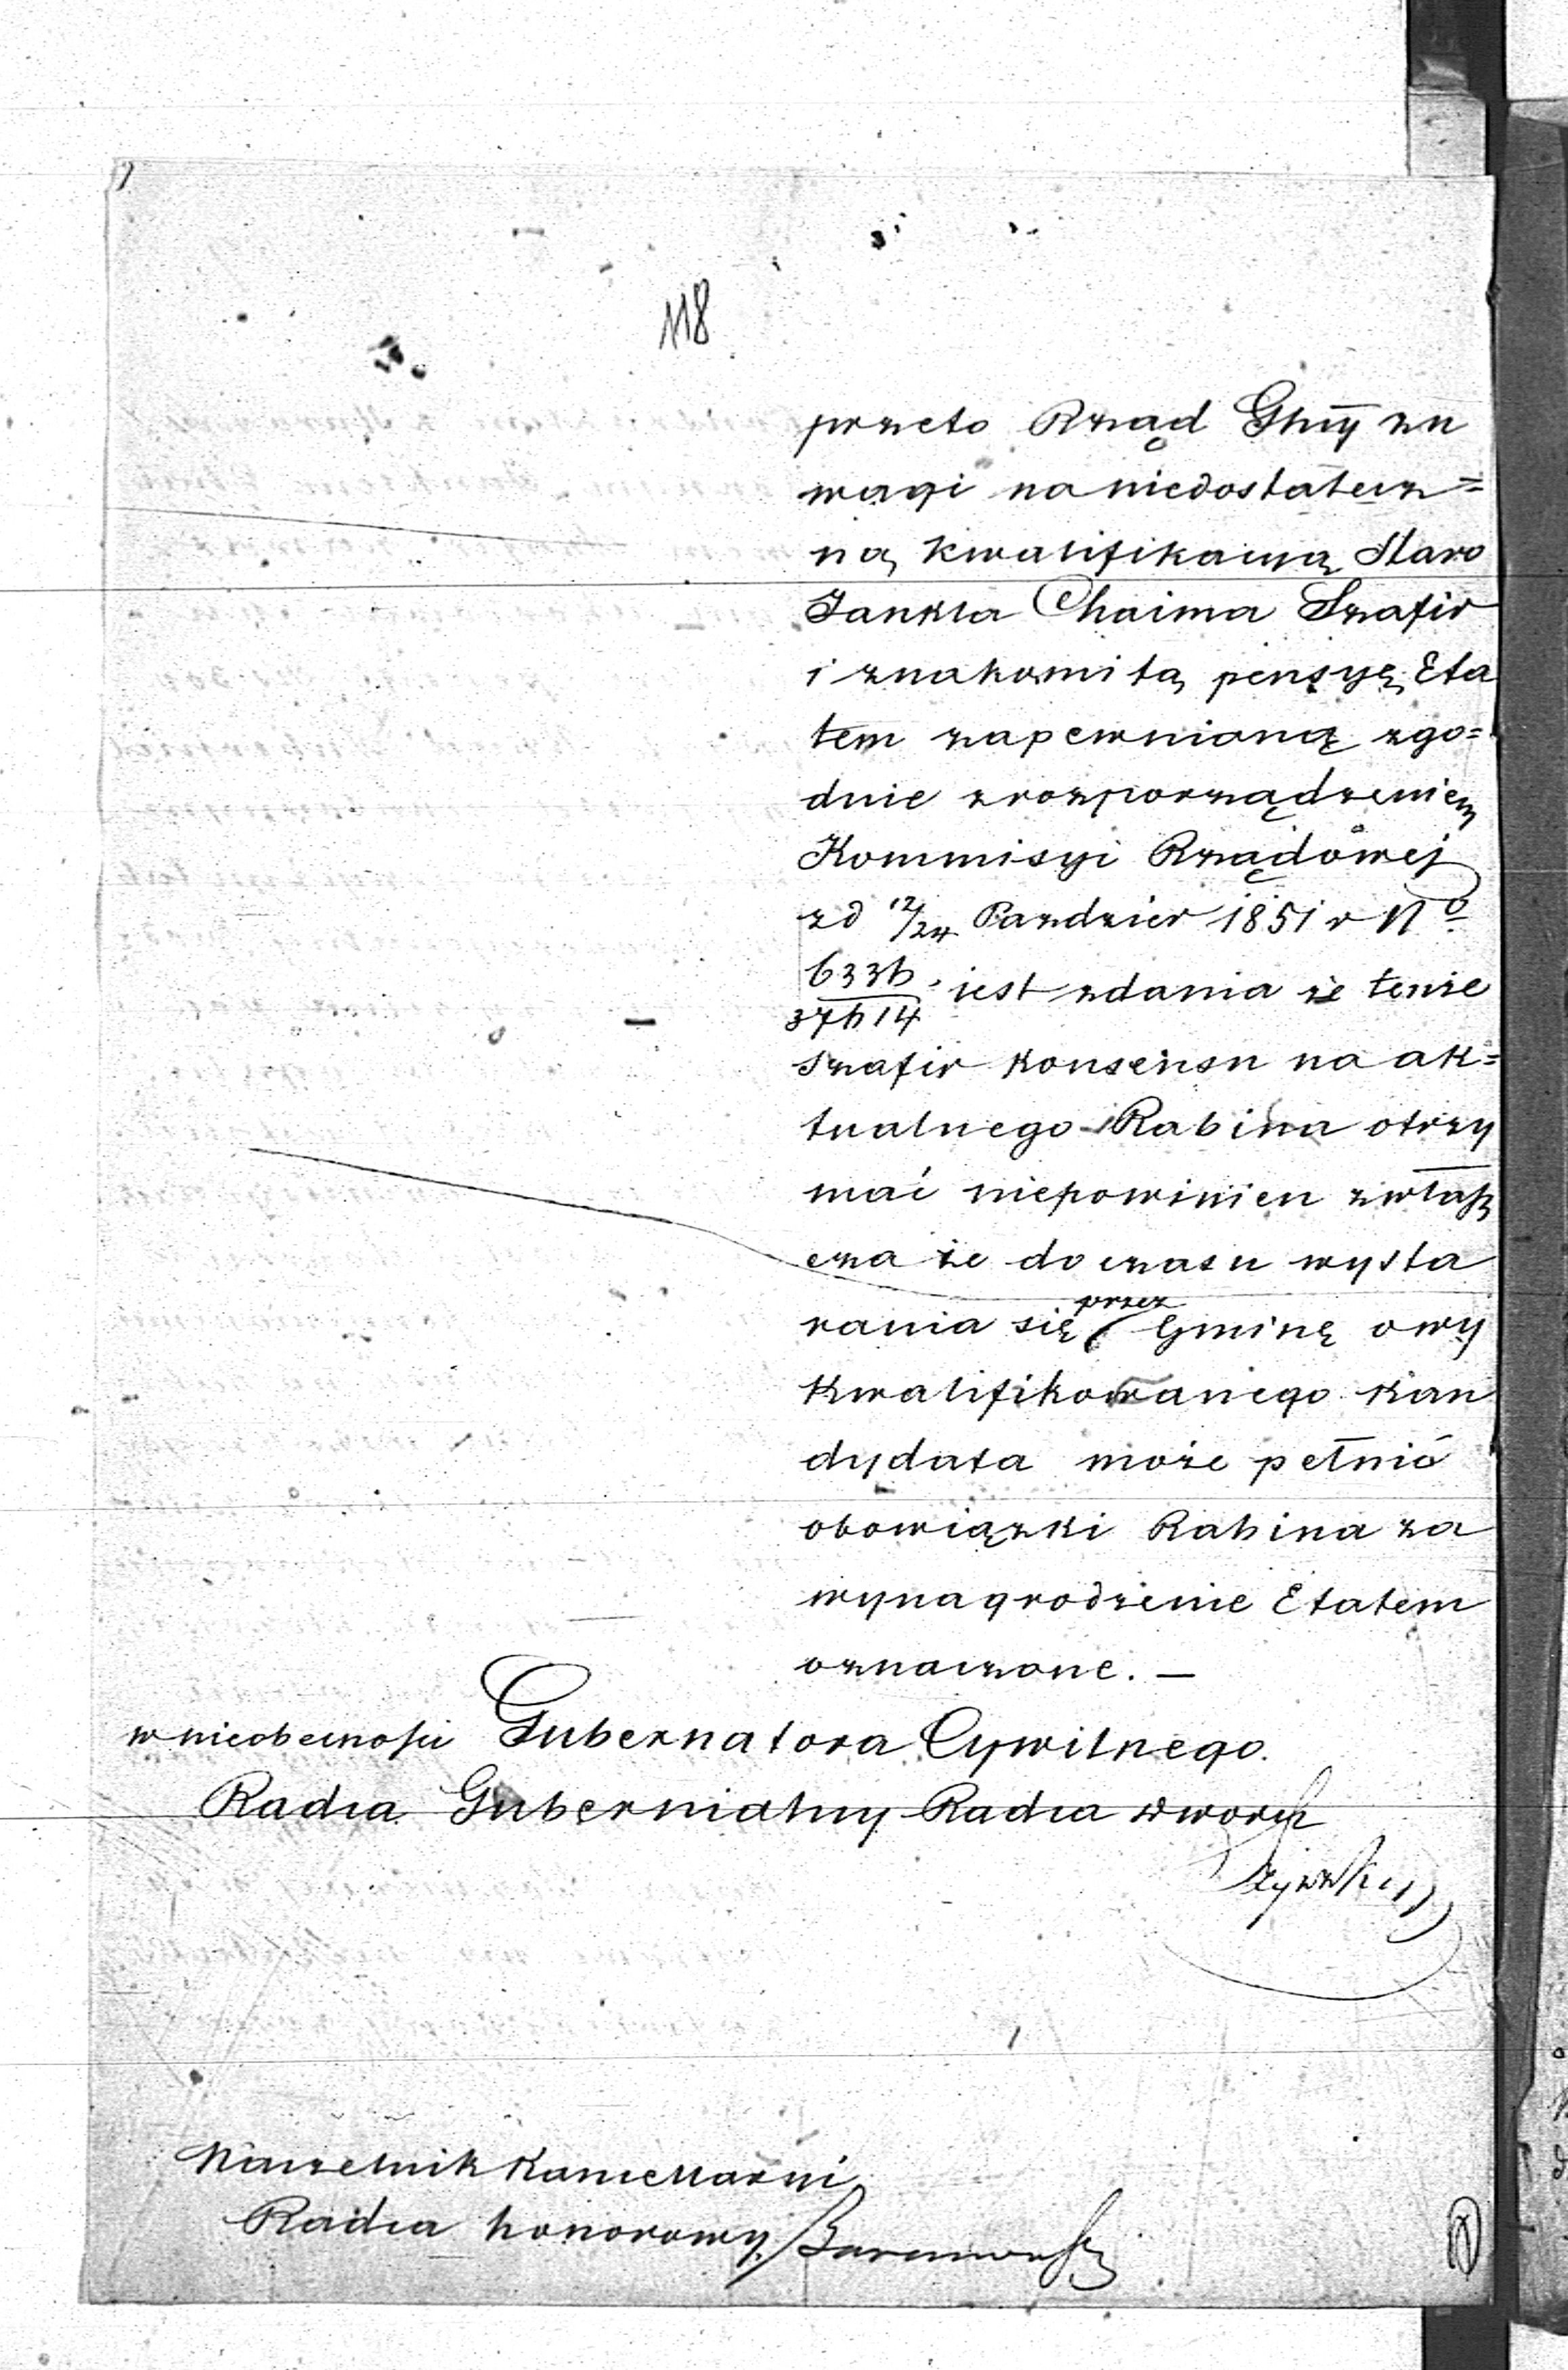 118
przeto Rząd Gny zu
wagi na niedostatecz=
ną kwalifikacyą Staro
Jankla Chaima Szafir
i znakomitą pensyę Eta
tem zapewnioną zgo=
dnie zrozporządzeniem
Kommisyi Rządowej
zd 12/24 Pazdzier 1851 r No
6336/37614 jest zdania że tenże
Szafir konsensu na ak=
tualnego Rabina otrzy
mać niepowinien zwłasz
cza że do czasu wysta
rania się przez Gminę o wy
kwalifikowanego kan
dydata może pełnić
obowiązki Rabina za
wynagrodzenie Etatem
oznaczone. —
w nieobecności Gubernatora Cywilnego.
Radca Gubernialny Radca dworu
Naczelnik Kancellaryi
Radca honorowy